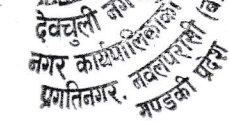 देवचुली नग
नगर कार्यपालिकाको
प्रगतिनगर, नवलपरासी (ब
गण्डकी प्रदेश